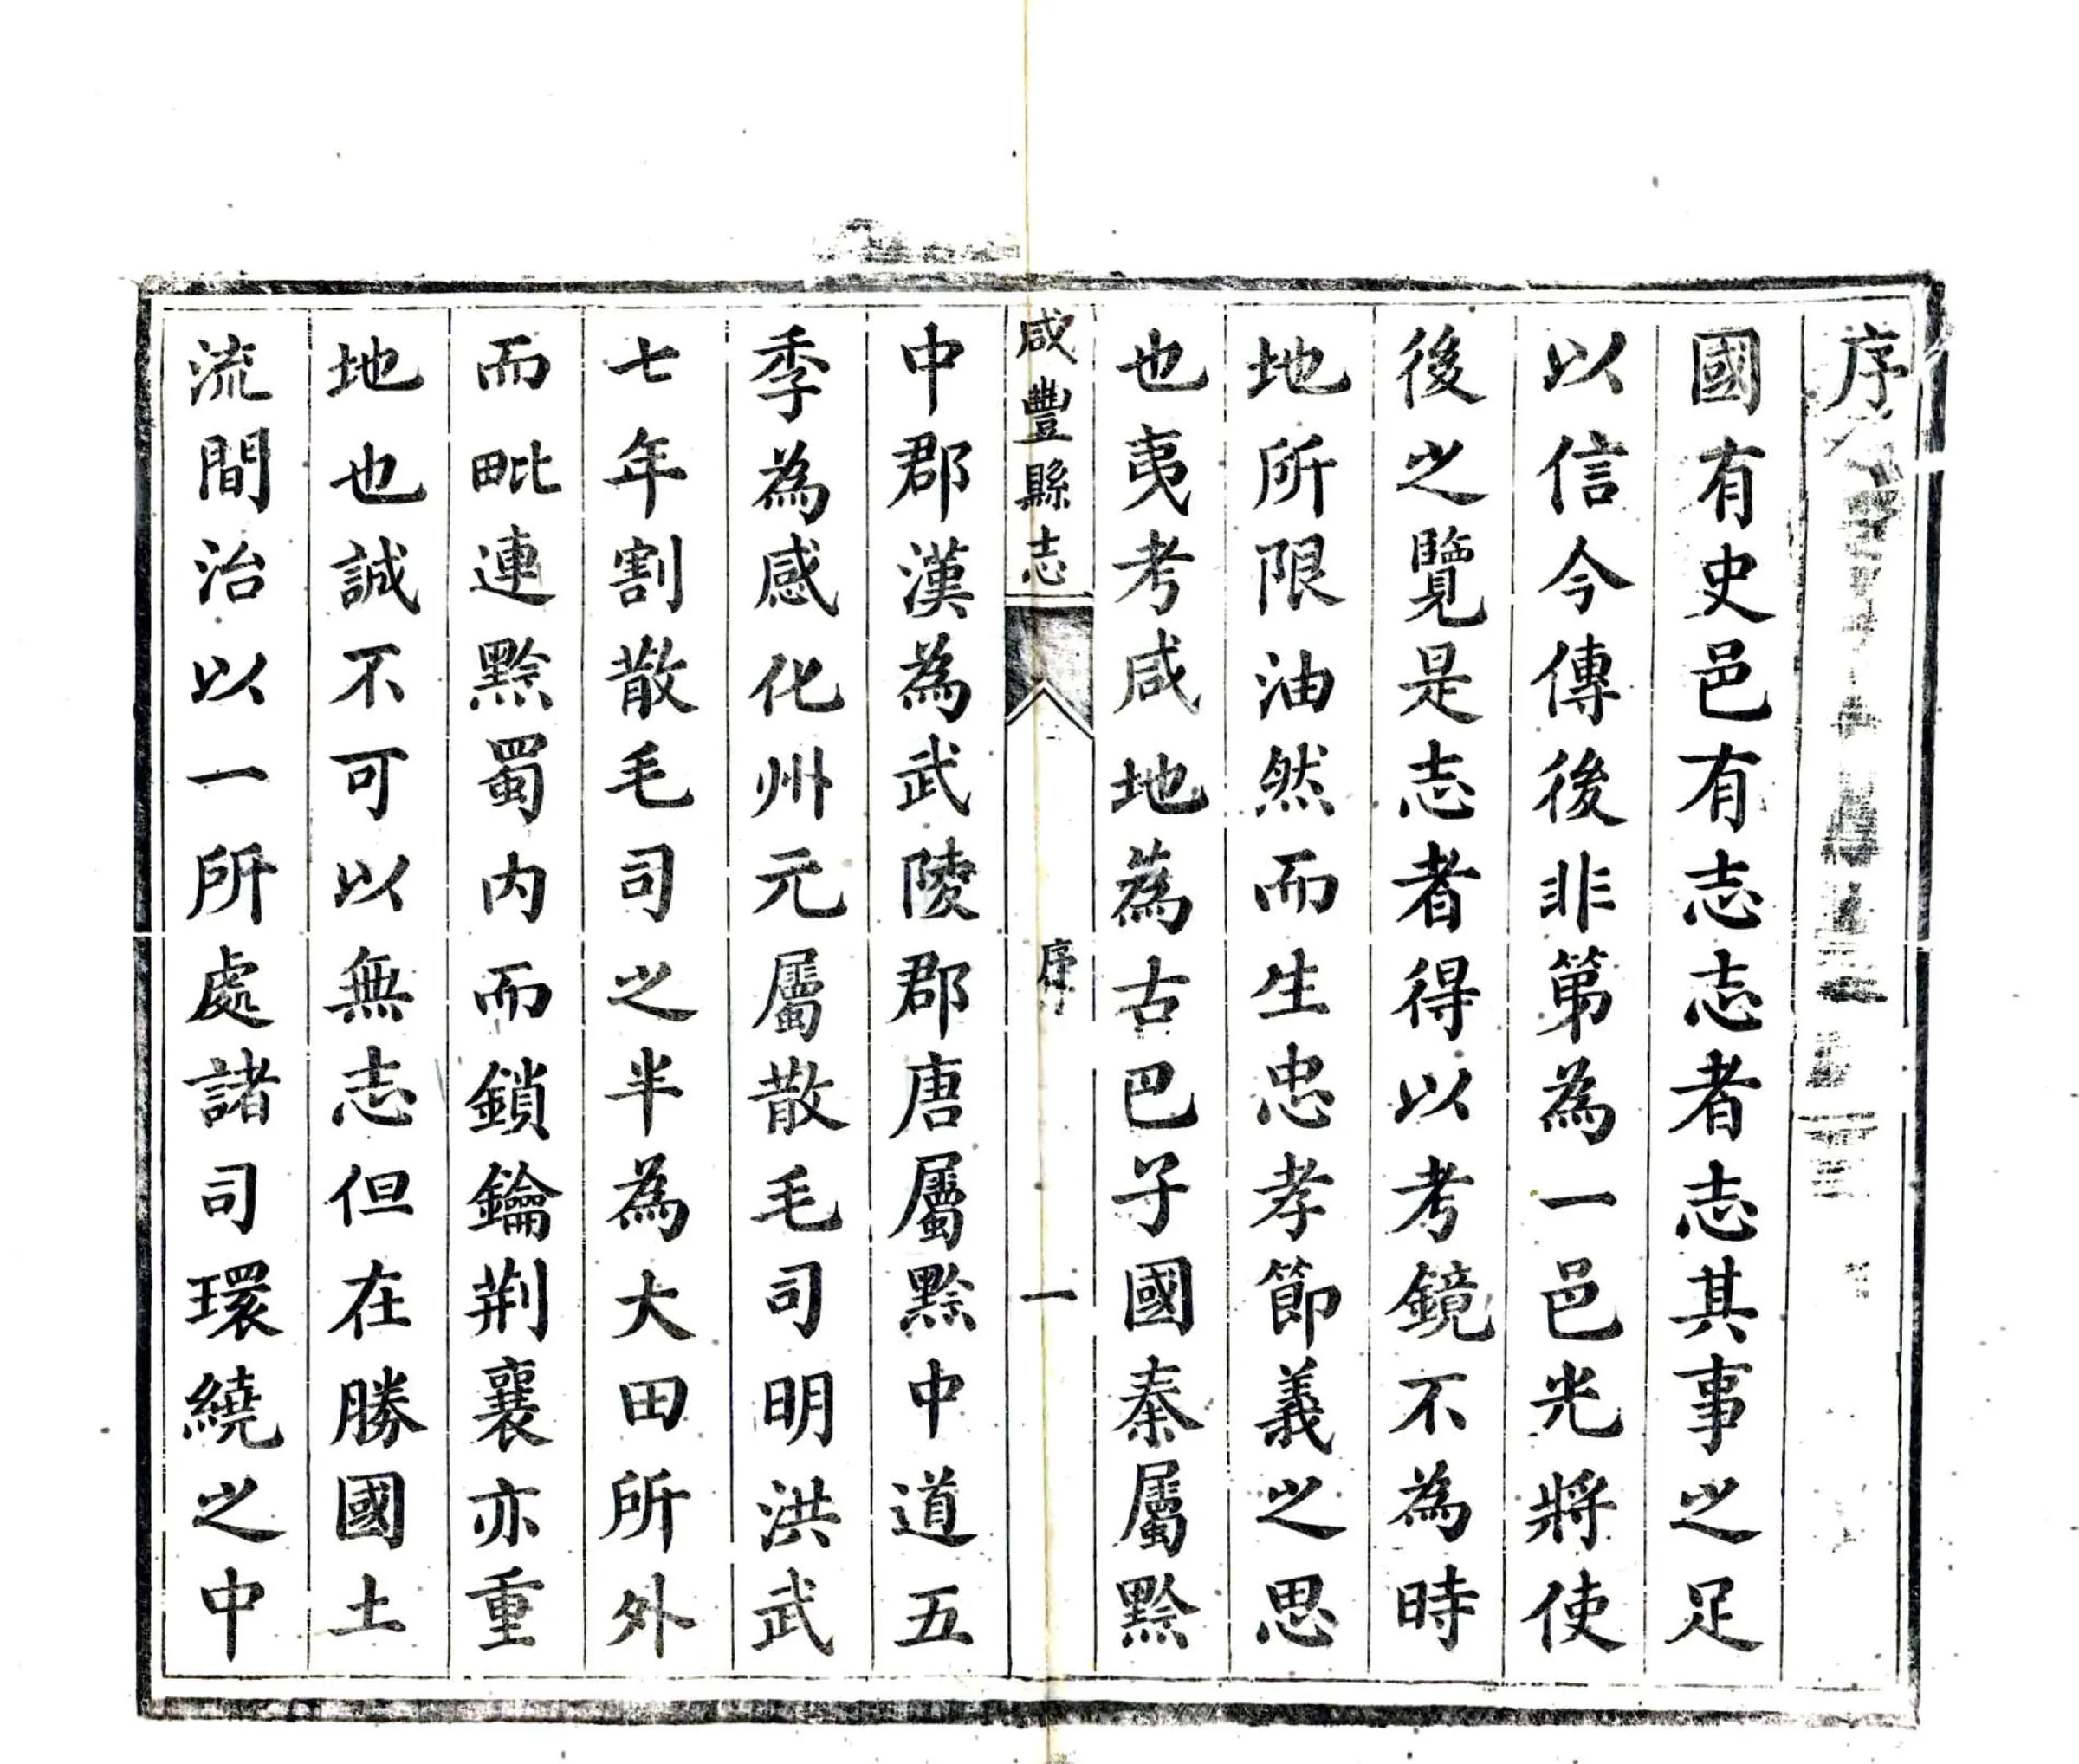 序
國有史邑有志志者志其事之足
以信今傳後非第為一邑光將使
後之覽是志者得以考鏡不為時
地所限油然而生忠孝節義之思
也夷考咸地為古巴子國秦屬黔
咸豐縣志
序
一
中郡漢為武陵郡唐屬黔中道五
季為感化州元屬散毛司明洪武
七年割散毛司之半為大田所外
而毗連黔蜀內而鎖鑰荆襄亦重
地也誠不可以無志但在勝國土
流間治以一所處諸司環繞之中